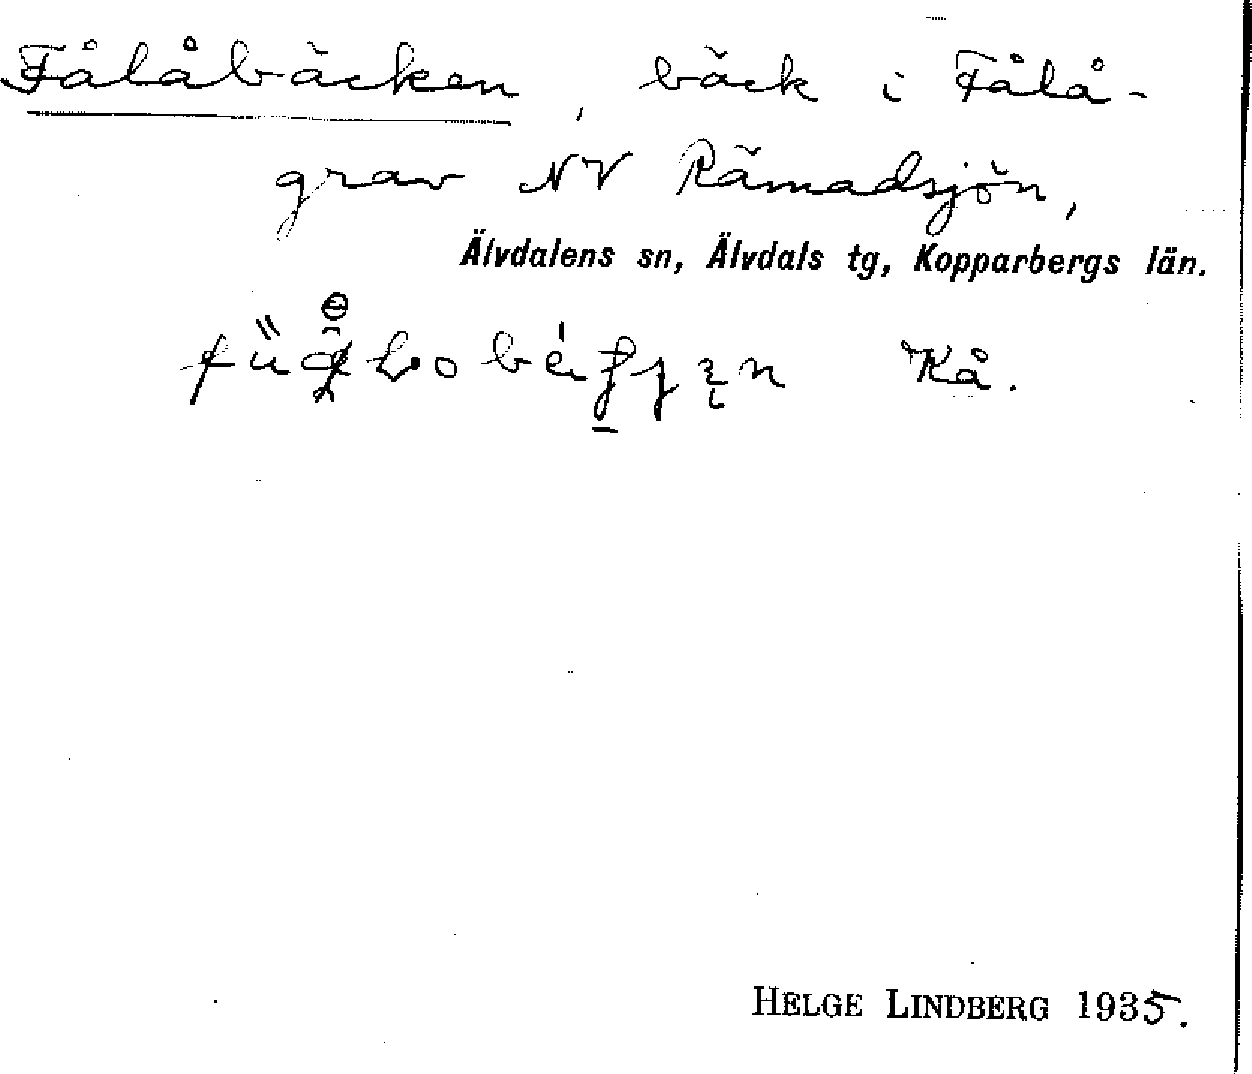 Fålåbäcken, bäck i Fålå-
grav NV Rämadsjön,
Älvdalens sn, Älvdals tg, Kopparbergs län.
Kå.
HELGE LINDBERG 1935.